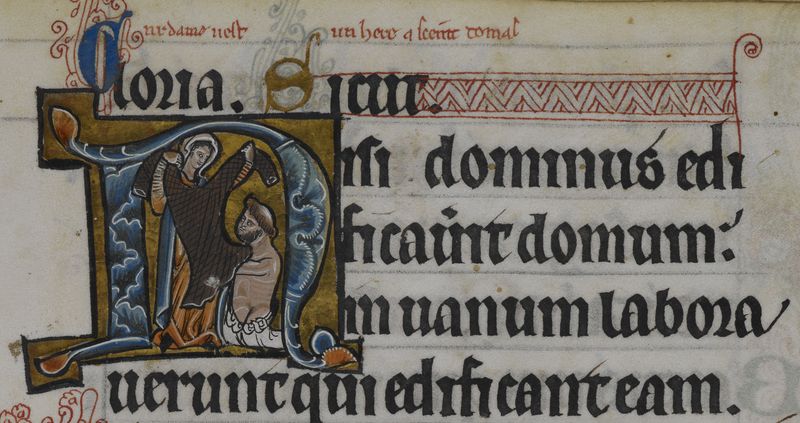 nrdame uest un here a seint tomas
Gloria. Sicut.
Nisi dominus edi
ficau̅it domum:
In uanum labora
uerunt qui edificant eam.